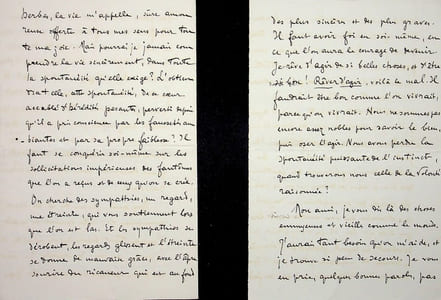 herbes, la vie m'appelle, sûre amou
reuse offerte à tous mes sens pour tou
te ma joie. Mais pourrai-je jamais com
prendre la vie sincèrement, dans toute
la spontanéité qu'elle exige? L'obtien
dra-t-elle, cette spontanéité, de ce cœur
accablé d'hérédités pesantes, perverti depuis
qu'il a pris conscience par les faussetés am
biantes et par sa propre faiblesse? Il
faut se conquérir soi-même sur les
sollicitations impérieuses des fantômes
que l'on a reçus et de ceux qu'on se crée.
On cherche des sympathies, un regard,
une étreinte, qui vous soutiennent lors
que l'on est las. Et les sympathies se
dérobent, les regards glissent et l'étreinte
se donne de mauvaise grâce, avec l'âpre
sourire du ricaneur qui est au fond
des plus sincères et des plus graves.
Il faut avoir foi en soi-même, en
ce que l'on aura le courage de devenir.
Je rêve d'agir de si belles choses, et d'être
si bon! Rêver d'agir, voilà le mal. Il
faudrait être bon comme l'on vivrait,
parce qu'on vivrait. Nous ne sommes pas
encore assez nobles pour savoir le bien
puis oser l'agir. Nous avons perdu la
spontanéité puissante de l'instinct,
quand trouverons-nous celle de la volonté
raisonnée?
Mon ami, je vous dis là des choses
ennuyeuses et vieilles comme le monde.
J'aurais tant besoin qu'on m'aide, et
je trouve si peu de secours. Je vous
en prie, quelques bonnes paroles, pas